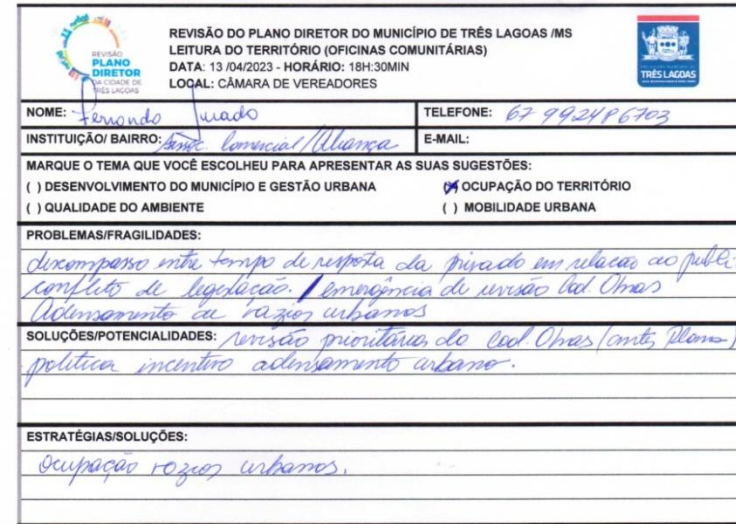 REVISÃO
PLANO
DIRETOR
DA CIDADE DE
TRÊS LAGOAS
REVISÃO DO PLANO DIRETOR DO MUNICÍPIO DE TRÊS LAGOAS /MS
LEITURA DO TERRITÓRIO (OFICINAS COMUNITÁRIAS)
DATA: 13 /04/2023 - HORÁRIO: 18H:30MIN
LOCAL: CÂMARA DE VEREADORES
TRÊS LAGOAS
NOME: Fernando Jurado TELEFONE: 67 992486703
INSTITUIÇÃO/ BAIRRO: Assoc. Comercial/Aliança E-MAIL:
MARQUE O TEMA QUE VOCÊ ESCOLHEU PARA APRESENTAR AS SUAS SUGESTÕES:
( ) DESENVOLVIMENTO DO MUNICÍPIO E GESTÃO URBANA (X) OCUPAÇÃO DO TERRITÓRIO
( ) QUALIDADE DO AMBIENTE ( ) MOBILIDADE URBANA
PROBLEMAS/FRAGILIDADES:
descompasso entre tempo de resposta da privado em relacao ao publi
conflito de legislação. / emergência de revisão Cod. Obras
Adensamento de vazios urbanos
SOLUÇÕES/POTENCIALIDADES: revisão prioritária do Cod. Obras (antes Plano)
politica incentivo adensamento urbano.
ESTRATÉGIAS/SOLUÇÕES:
Ocupação vazios urbanos.